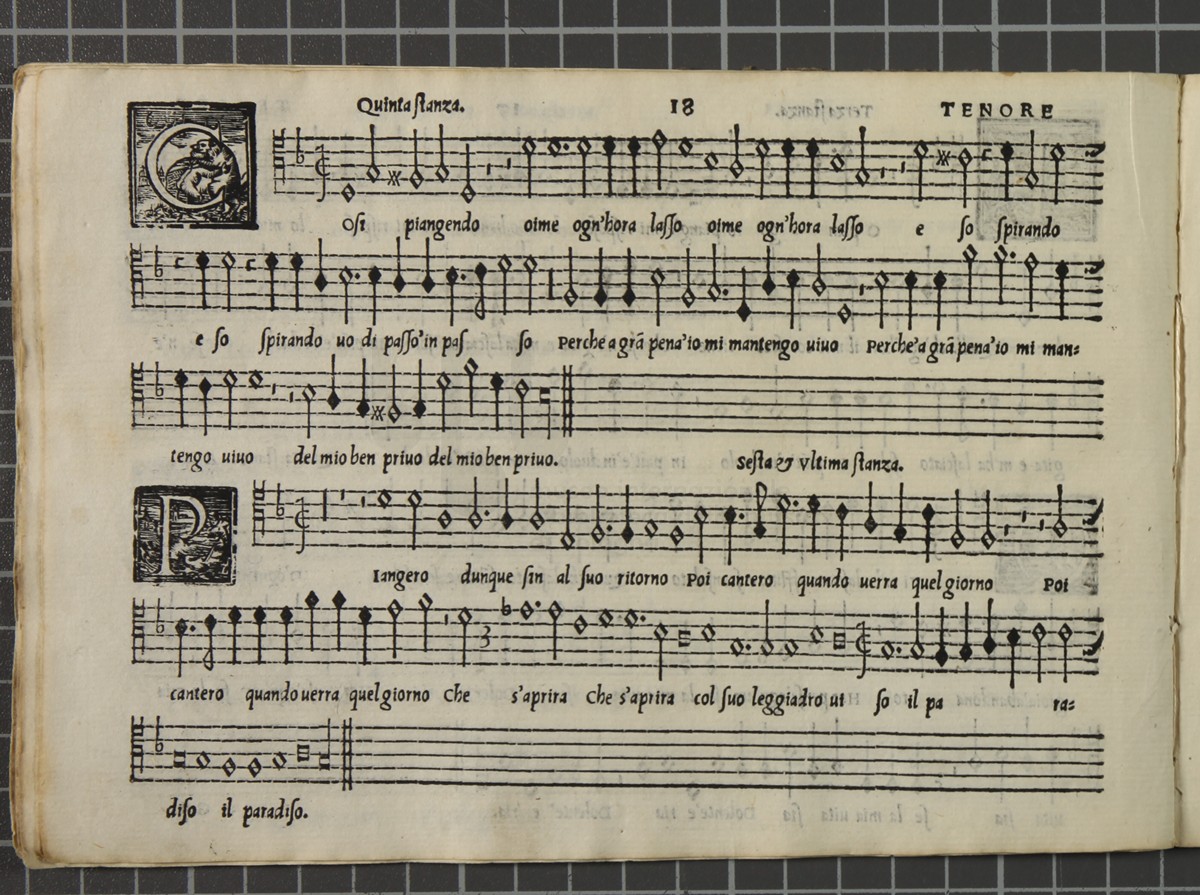 Quinta stanza. 18 TENORE
COsi piangendo oime ogn'hora lasso oime ogn'hora lasso e so spirando
e so spirando uo di passo'in pas so Perche a grã pena'io mi mantengo uiuo Perche'a grã pena'io mi man=
tengo uiuo del mio ben priuo del mio ben priuo.
Sesta & Vltima stanza.
PIangero dunque sin al suo ritorno Poi cantero quando uerra quel giorno Poi
3
cantero quando uerra quel giorno Che s'aprira Che s'aprira col suo leggiadro ui so il pa ra=
diso il paradiso.